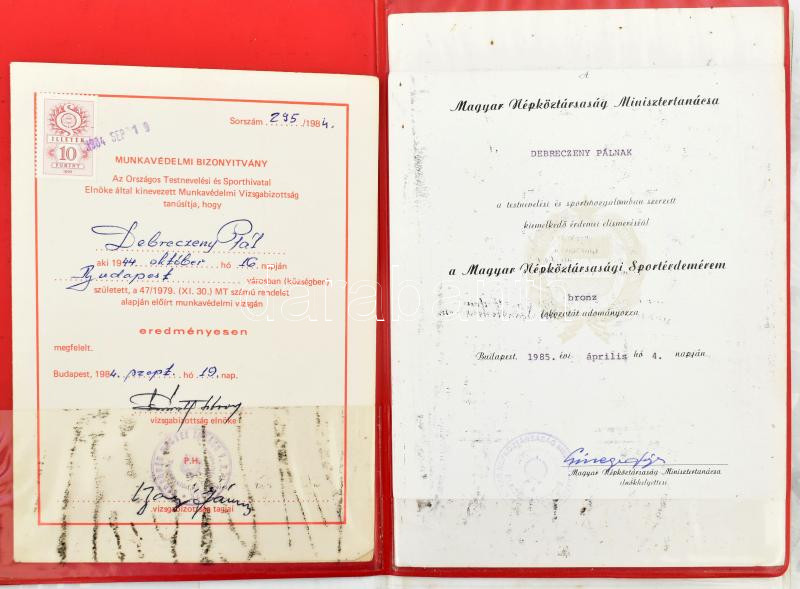 Sorszám 295/1984.
ILLETÉK
10
FORINT
1984 SEP 19
MUNKAVÉDELMI BIZONYITVÁNY
Az Országos Testnevelési és Sporthivatal
Elnöke által kinevezett Munkavédelmi Vizsgabizottság
tanúsítja, hogy
Debreczeny Pál
aki 1944 október hó 16 napján
Budapest városban (községben)
született, a 47/1979. (XI. 30.) MT számú rendelet
alapján előírt munkavédelmi vizsgán
eredményesen
megfelelt.
Budapest, 1984. szept. hó 19. nap.
vizsgabizottság elnöke
P.H.
vizsgabizottság tagjai
A
Magyar Népköztársaság Minisztertanácsa
DEBRECZENY PÁLNAK
a testnevelési és sportmozgalomban szerzett
kiemelkedő érdemei elismeréséül
a Magyar Népköztársasági Sportérdemérem
bronz
fokozatát adományozza.
Budapest, 1985. évi április hó 4. napján.
Magyar Népköztársaság Minisztertanácsa
elnökhelyettesei
darabanth